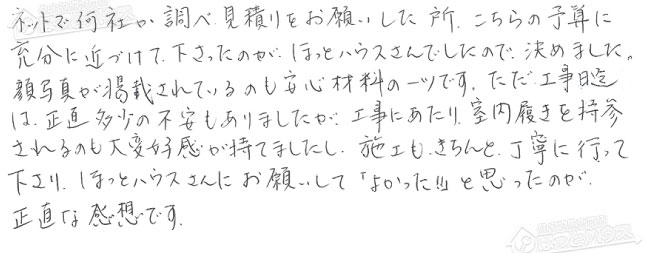 ネットで何社か調べ見積りをお願いした所、こちらの予算に
充分に近づけて下さったのが、ほっとハウスさんでしたので、決めました。
顔写真が掲載されているのも安心材料の一ツです。ただ工事日迄
は、正直多少の不安もありましたが、工事にあたり、室内履きを持参
されるのも大変好感が持てましたし、施工も、きちんと、丁寧に行って
下さり、ほっとハウスさんにお願いして「よかった!!」と思ったのが、
正直な感想です。
ほっとハウス